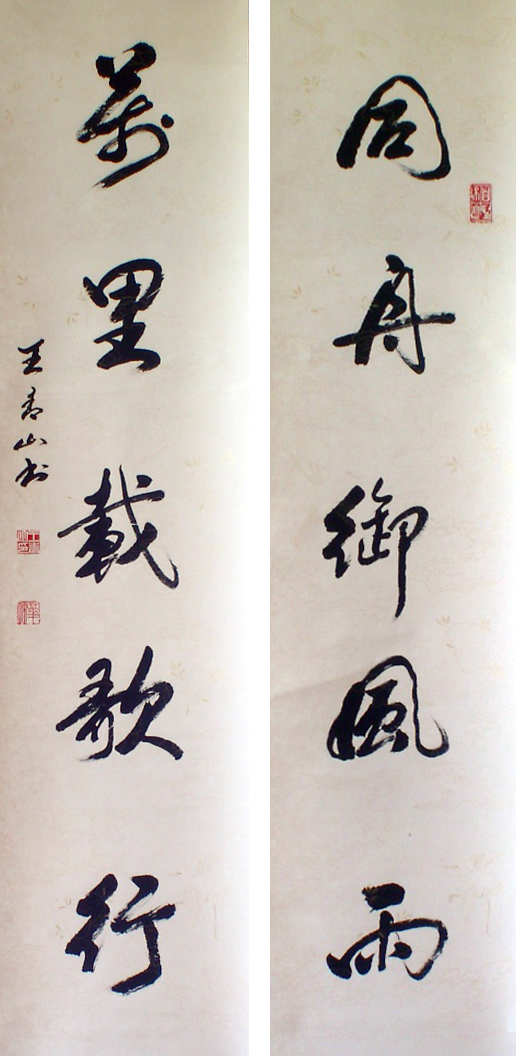 同舟御風雨
萬里載歌行
王秀山書